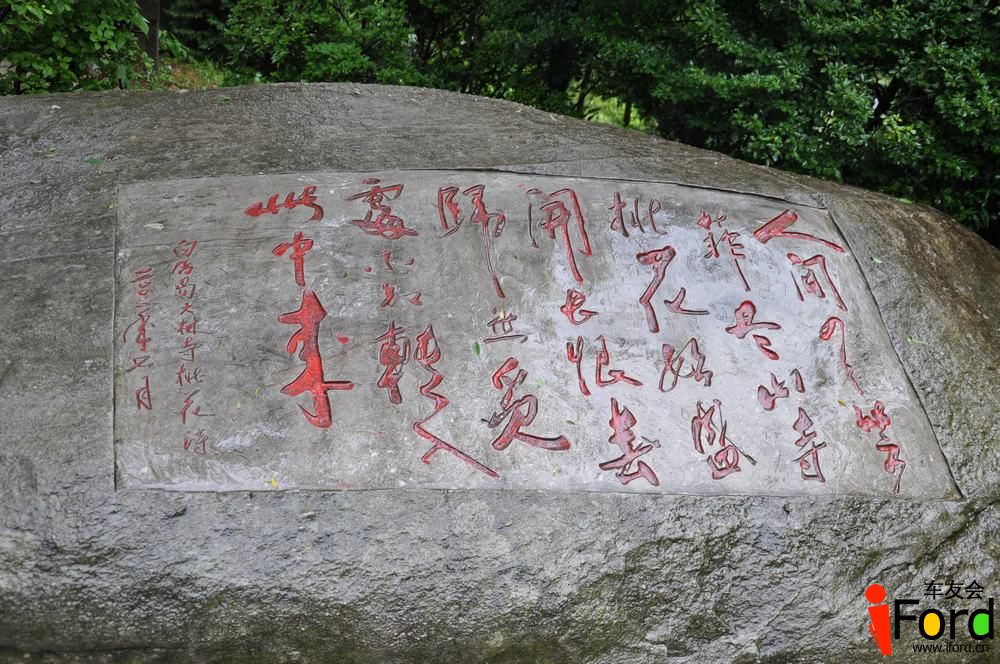 人间四月芳
菲尽山寺
桃花始盛
開長恨春
歸無覓
處不知轉入
此中来
白居易大林寺桃花诗
年七月
车友会
iFord
www.iford.cn